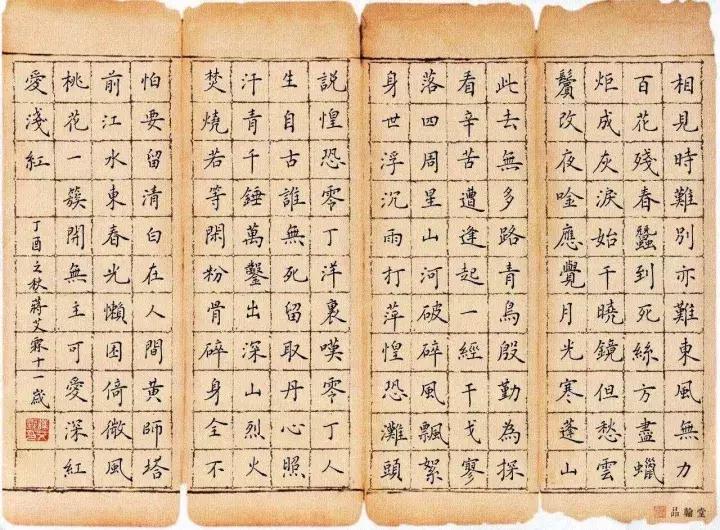 相見時難別亦難東風無力
百花殘春蠶到死絲方盡蠟
炬成灰淚始干曉鏡但愁雲
鬢改夜唫應覺月光寒蓬山
此去無多路青鳥殷勤為探
看辛苦遭逢起一經干戈寥
落四周星山河破碎風飄絮
身世浮沉雨打萍惶恐灘頭
説惶恐零丁洋裏嘆零丁人
生自古誰無死留取丹心照
汗青千錘萬鑿出深山烈火
焚燒若等閑粉骨碎身全不
怕要留清白在人間黃師塔
前江水東春光懶困倚微風
桃花一簇開無主可愛深紅
愛淺紅
丁酉之秋蔣艾霖十一歲
品翰堂